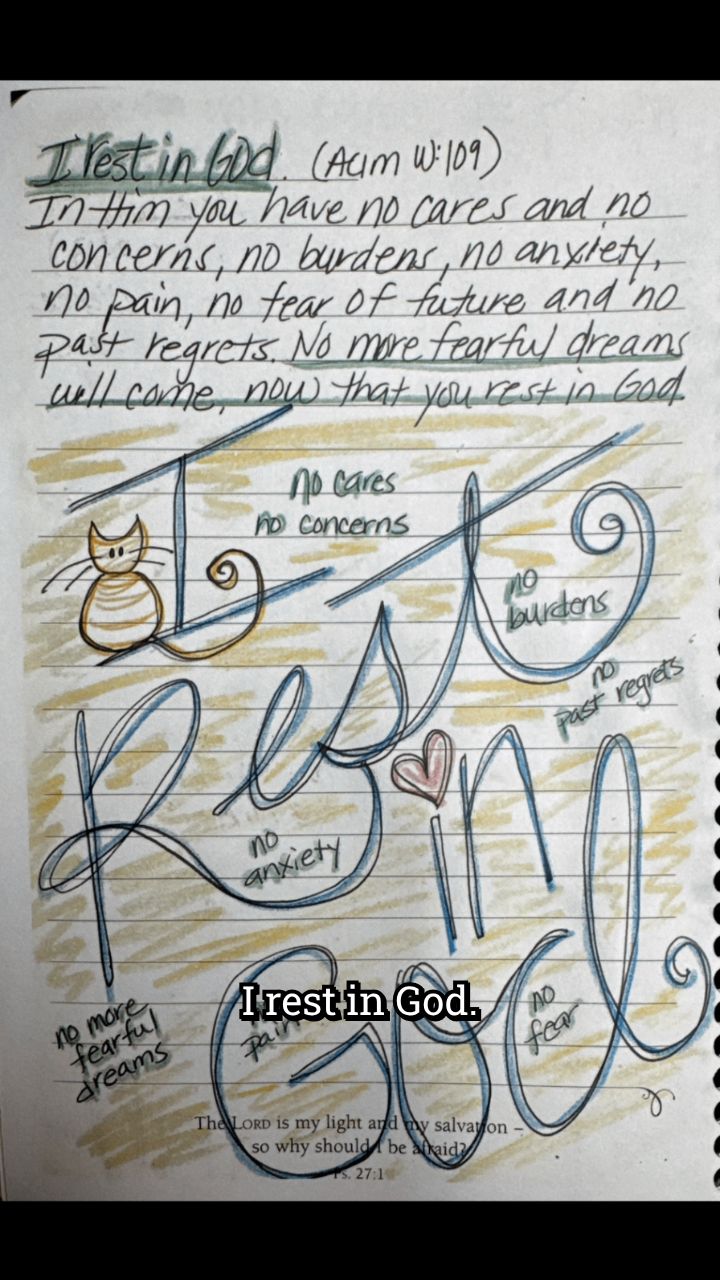 I rest in GOD. (Acim W:109)
In Him you have no cares and no
concerns, no burdens, no anxiety,
no pain, no fear of future and no
past regrets. No more fearful dreams
will come, now that you rest in God.
I
no cares
no concerns
Rest
no
burdens
no
past regrets
in
no
anxiety
God
no more
fearful
dreams
pain
I rest in God.
no
fear
The LORD is my light and my salvation –
so why should I be afraid?
Ps. 27:1